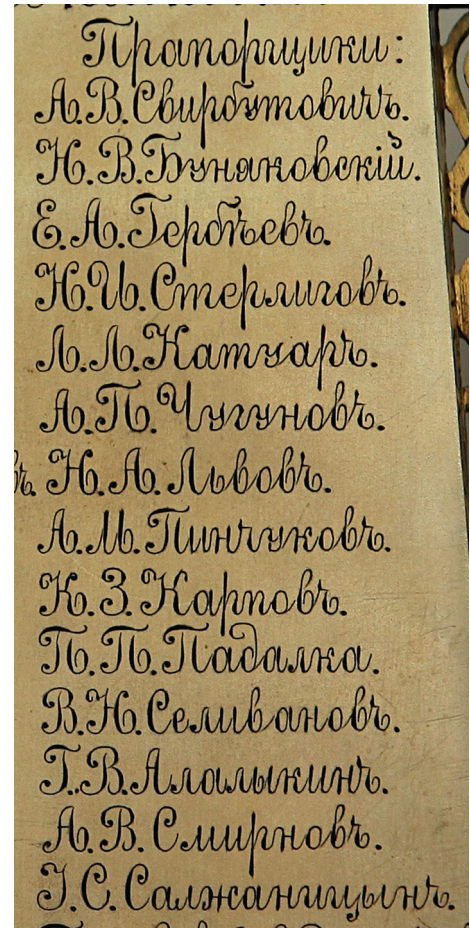 Прапорщики:
А.В.Свирбутовичъ.
Н.В.Буняковскій.
Е.А.Гербѣевъ.
Н.И.Стерлиговъ.
Л.Л.Катуаръ.
А.П.Чугуновъ.
Н.А.Львовъ.
А.М.Пинчуковъ.
К.З.Карповъ.
П.П.Падалка.
В.Н.Селивановъ.
Г.В.Алалыкинъ.
А.В.Смирновъ.
І.С.Салжаницынъ.